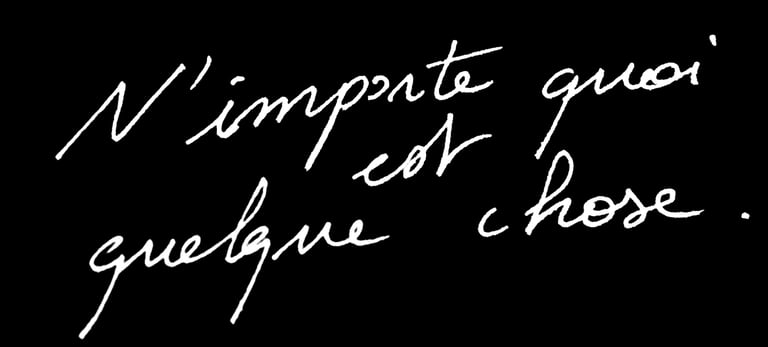 N'importe quoi
est
quelque chose.